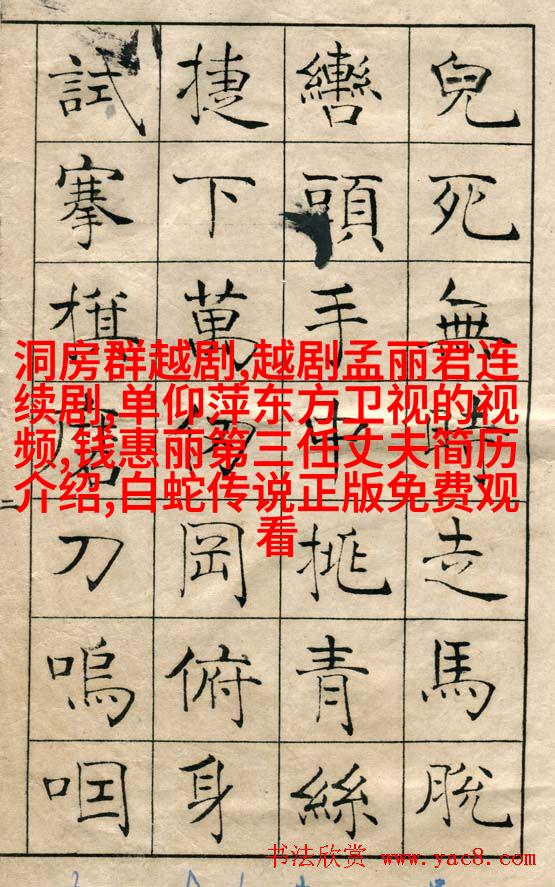 兒死無時走馬脫
轡頭手中挑青絲
捷下萬仞岡俯身
試搴旗磨刀嗚咽
洞房群越剧,越剧孟丽君连
续剧,单仰萍东方卫视的视
频,钱惠丽第三任丈夫简历
介绍,白蛇传说正版免费观
看
书法欣赏 www.yac8.com